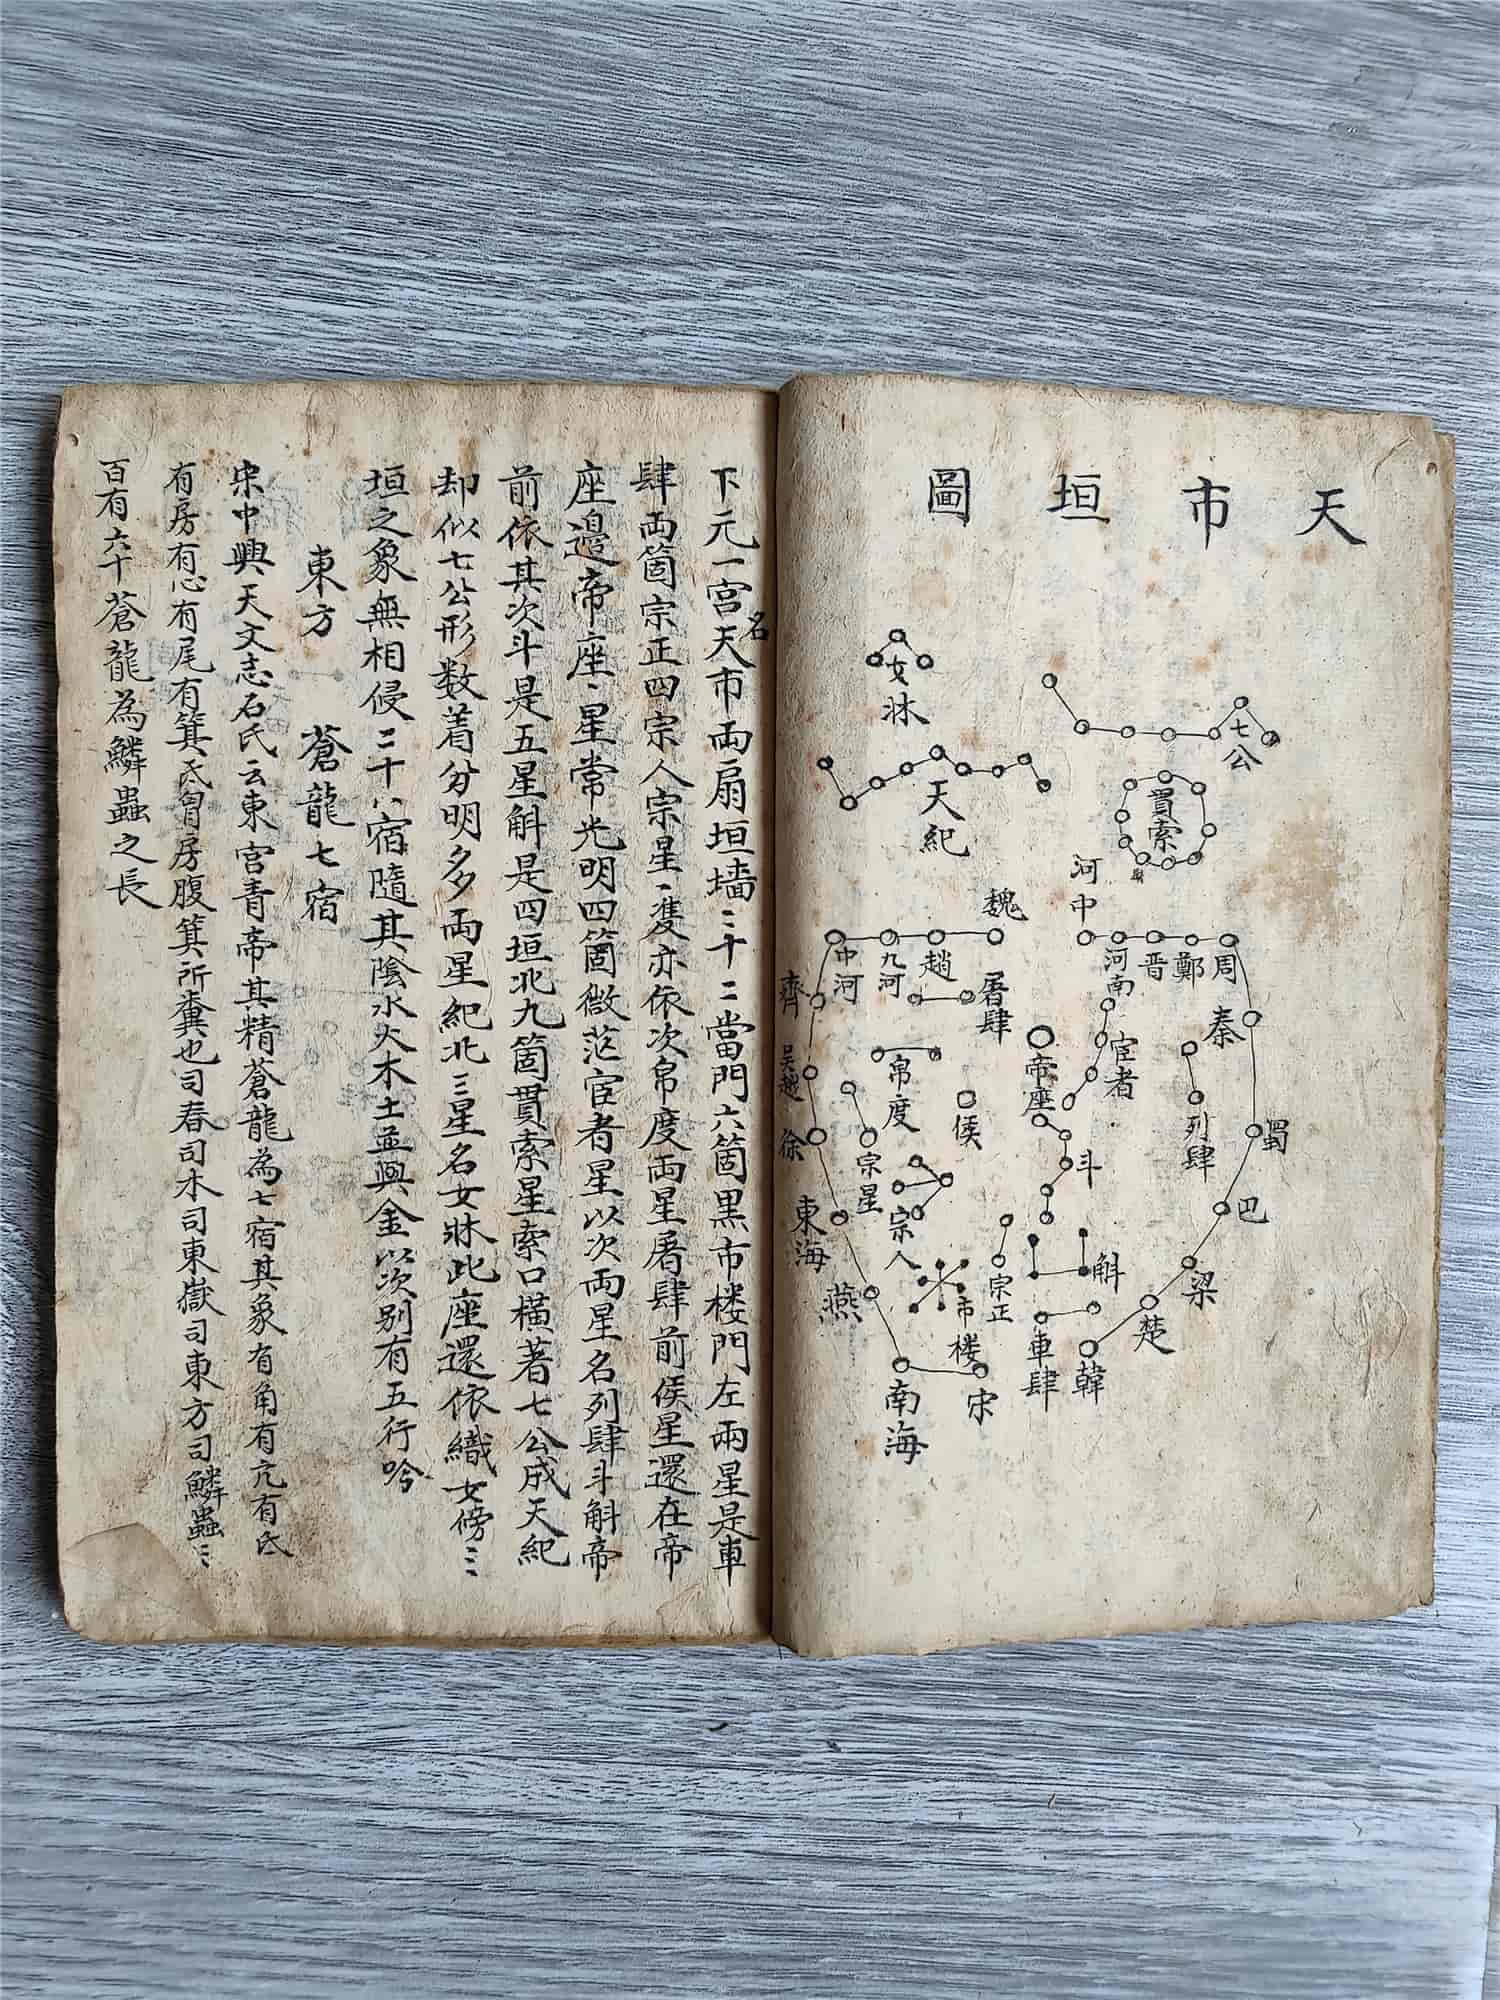 天市垣圖
七公
貫索
女牀
天紀
河中
河南
晋
鄭
周
秦
蜀
巴
梁
楚
韓
魏
趙
九河
中河
齊
吴越
徐
東海
燕
南海
宋
屠肆
帛度
侯
帝座
宦者
列肆
斗
斛
車肆
宗正
宗人
宗星
市楼
下元一宮名天市兩扇垣墻〻十二當門六箇黑市楼門左兩星是車
肆兩箇宗正四宗人宗星〻隻亦依次帛度兩星屠肆前侯星還在帝
座邉帝座〻星常光明四箇微茫宦者星以次兩星名列肆斗斛帝
前依其次斗是五星斛是四垣北九箇貫索星索口橫著七公成天紀
却似七公形数着分明多兩星紀北三星名女牀此座還依織女傍三
垣之象無相侵二十八宿隨其陰水火木土並與金以次别有五行吟
東方 蒼龍七宿
宋中興天文志石氏云東宮青帝其精蒼龍為七宿其象有角有亢有氐
有房有心有尾有箕氐胷房腹箕所糞也司春司木司東嶽司東方司鱗蟲三
百有六十蒼龍為鱗蟲之長